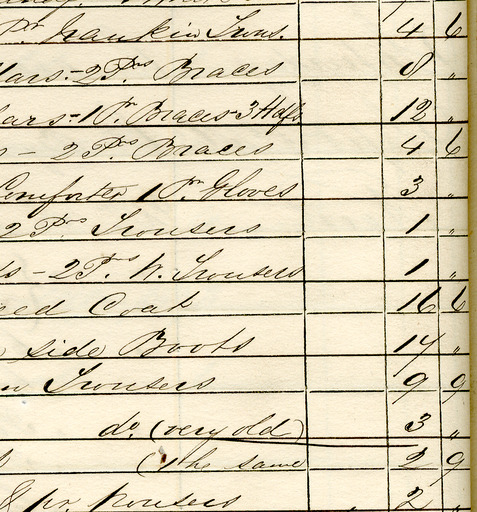 Pr Nankin Trous. 4 6
llars - 2 Prs Braces 8 "
lars - 1 Pr Braces - 3 Hdfs 12 "
s - 2 Prs Braces 4 6
Comforter 1 Pr Gloves 3 "
2 Prs Trousers 1 "
ts - 2 Prs W. Trousers 1 "
ced Coat 16 6
side Boots 17 "
n Trousers 9 9
do (very old) 3 "
(the same 2 9
& pr trousers 2 "